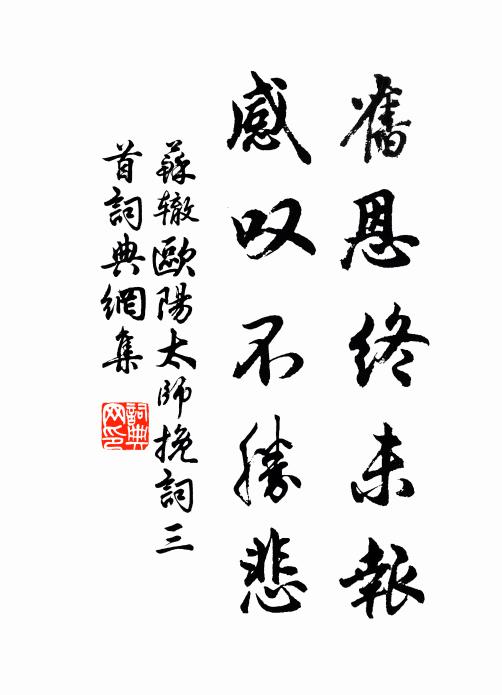 舊恩終未報
感叹不勝悲
蘇辙歐陽太師挽詞三
首詞典網集
詞典
网印